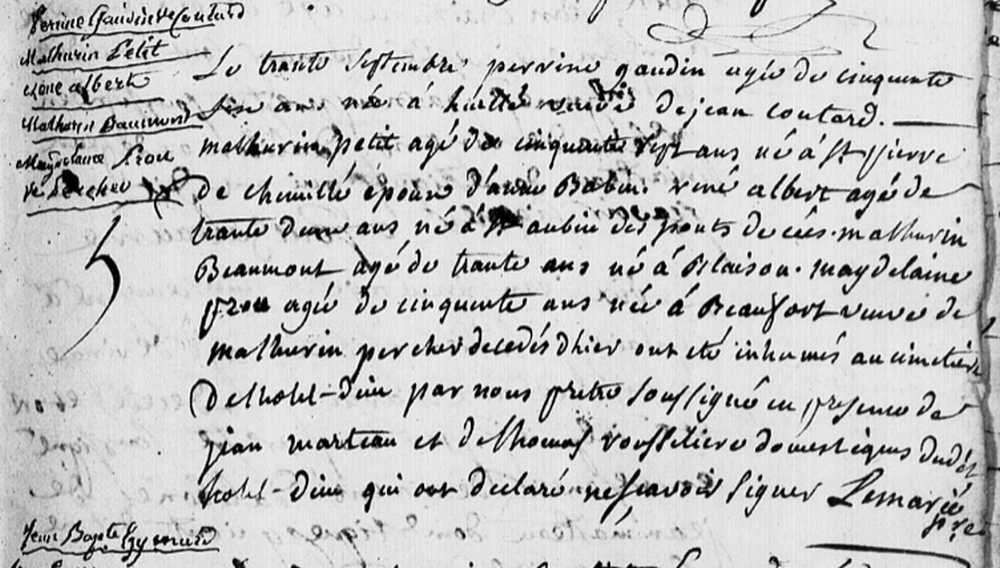 Perrine Gaudin Ve Coutard
Mathurin Petit
rene albert
Mathurin Beaumont
Magdelaine Frou
Ve Percher
5
Le trante Septembre perrine gaudin agée de cinquente
Sise ans née à veuve de jean Coutard.
mathurin petit agé de cinquante sept ans né à St pierre
de chemillé epoux d'anne Babin. rené albert agé de
trante deux ans né à St aubin des ponts de cées. mathurin
Beaumont agé de trante ans né à Blaison. magdelaine
frou agée de cinquente ans née à Beaufort veuve de
mathurin percher decedés d'hier ont eté inhumés au cimetière
De lhotel-dieu par nous prêtre Soussigné en presence de
jean marteau et de thomas domestiques dudt
hotel-dieu qui ont declaré ne scavoir signer Lemarié
ptre
Jean Bapte